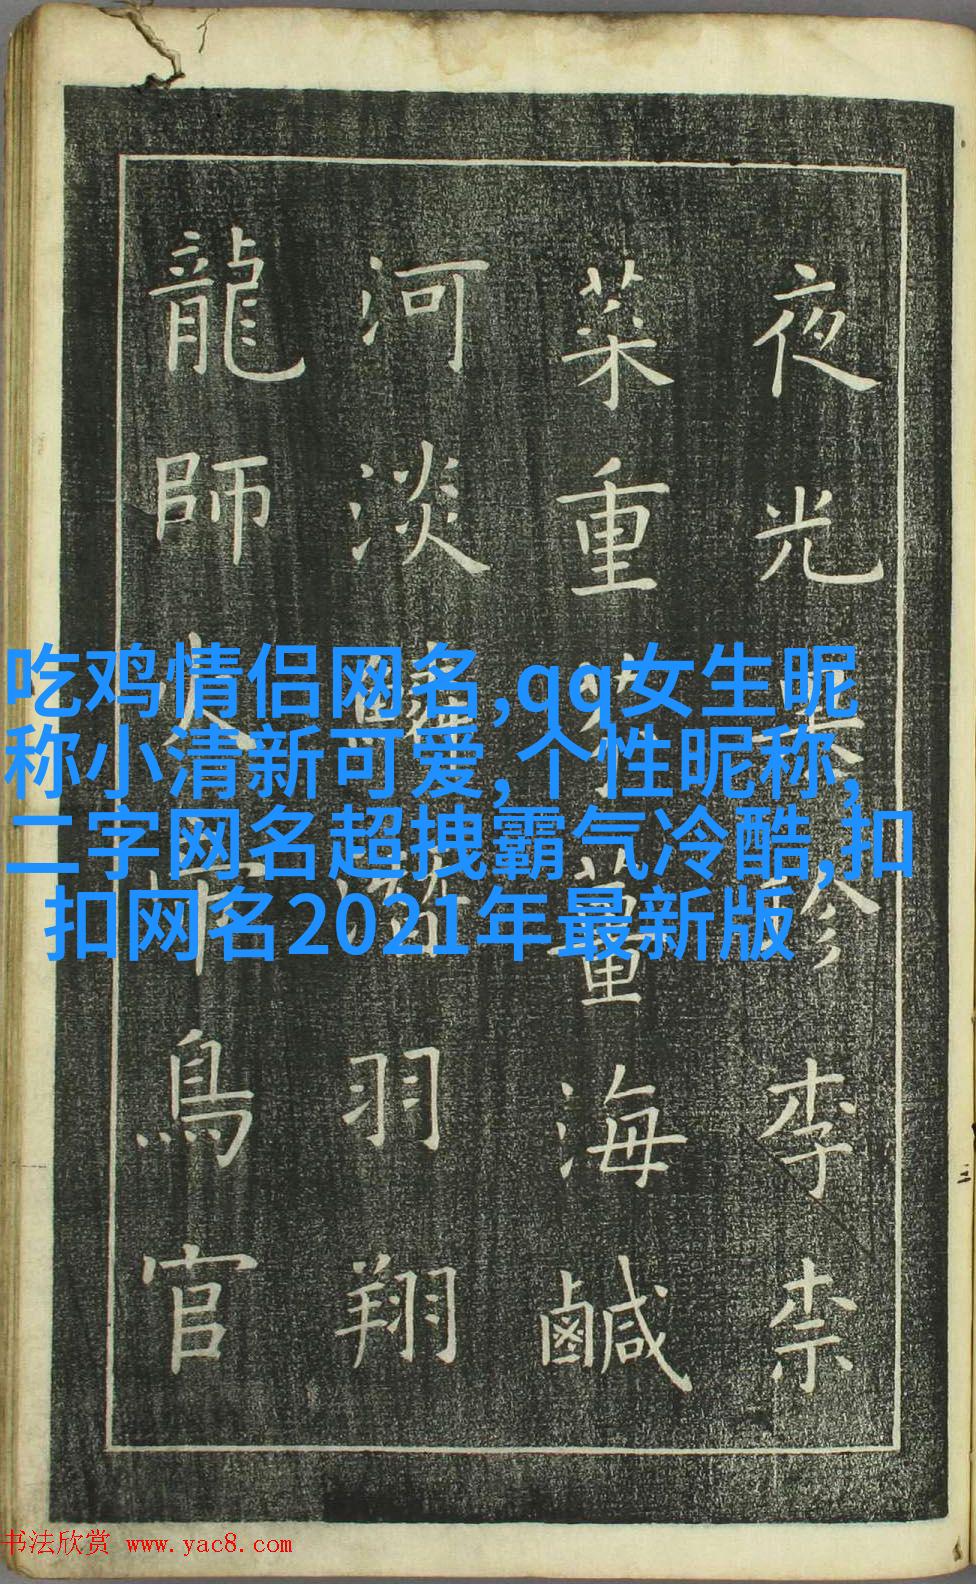 夜光果珍李柰
菜重芥薑海鹹
河淡鱗潛羽翔
龍師火帝鳥官
吃鸡情侣网名,qq女生昵
称小清新可爱,个性昵称,
二字网名超拽霸气冷酷,扣
扣网名2021年最新版
书法欣赏 www.yac8.com